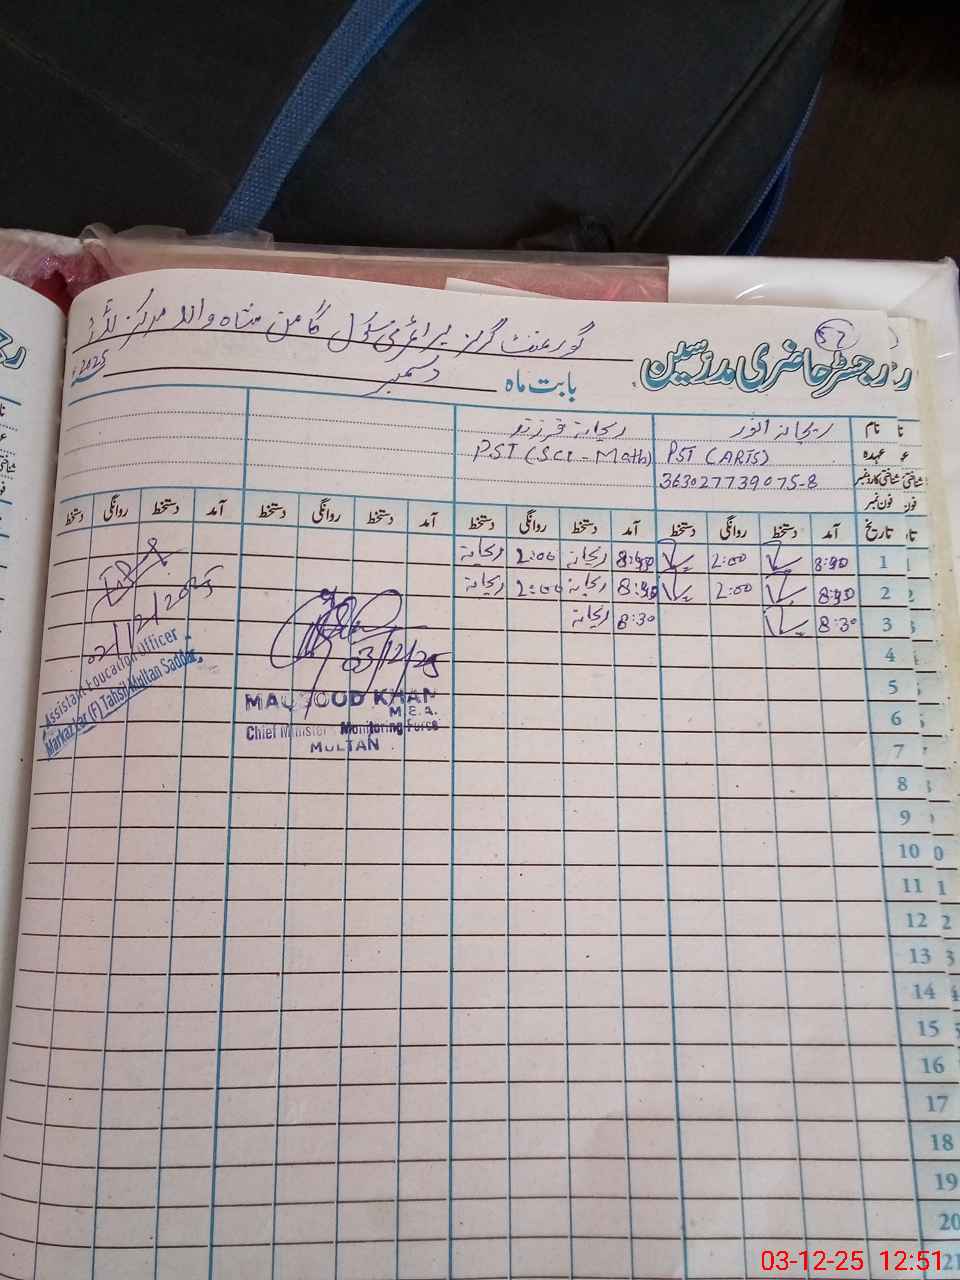 گورنمنٹ گرلز پرائمری سکول گامن شاہ والا مرکز لاڑ
رجسٹر حاضری مدرسین
52
بابت ماہ دسمبر 2025
نام ریحانہ انور ریحانہ
عہدہ PST (ARTS) PST (Sci - Math)
شناختی کارڈ نمبر 363027739075-8
فون نمبر
تاریخ آمد دستخط روانگی دستخط آمد دستخط روانگی دستخط آمد دستخط روانگی دستخط آمد دستخط روانگی دستخط
1 8:40 2:00 8:40 ریحانہ 2:00 ریحانہ
2 8:40 2:00 8:40 ریحانہ 2:00 ریحانہ
3 8:30 8:30 ریحانہ
4
5
6
7
8
9
10
11
12
13
14
15
16
17
18
19
20
21
02/12/2025
Assistant Education Officer
Markaz Lar (F) Tahsil Multan Saddar.
03/12/25
MAQSOOD KHAN
M.E.A.
Chief Minister Monitoring Force
MULTAN
03-12-25 12:51